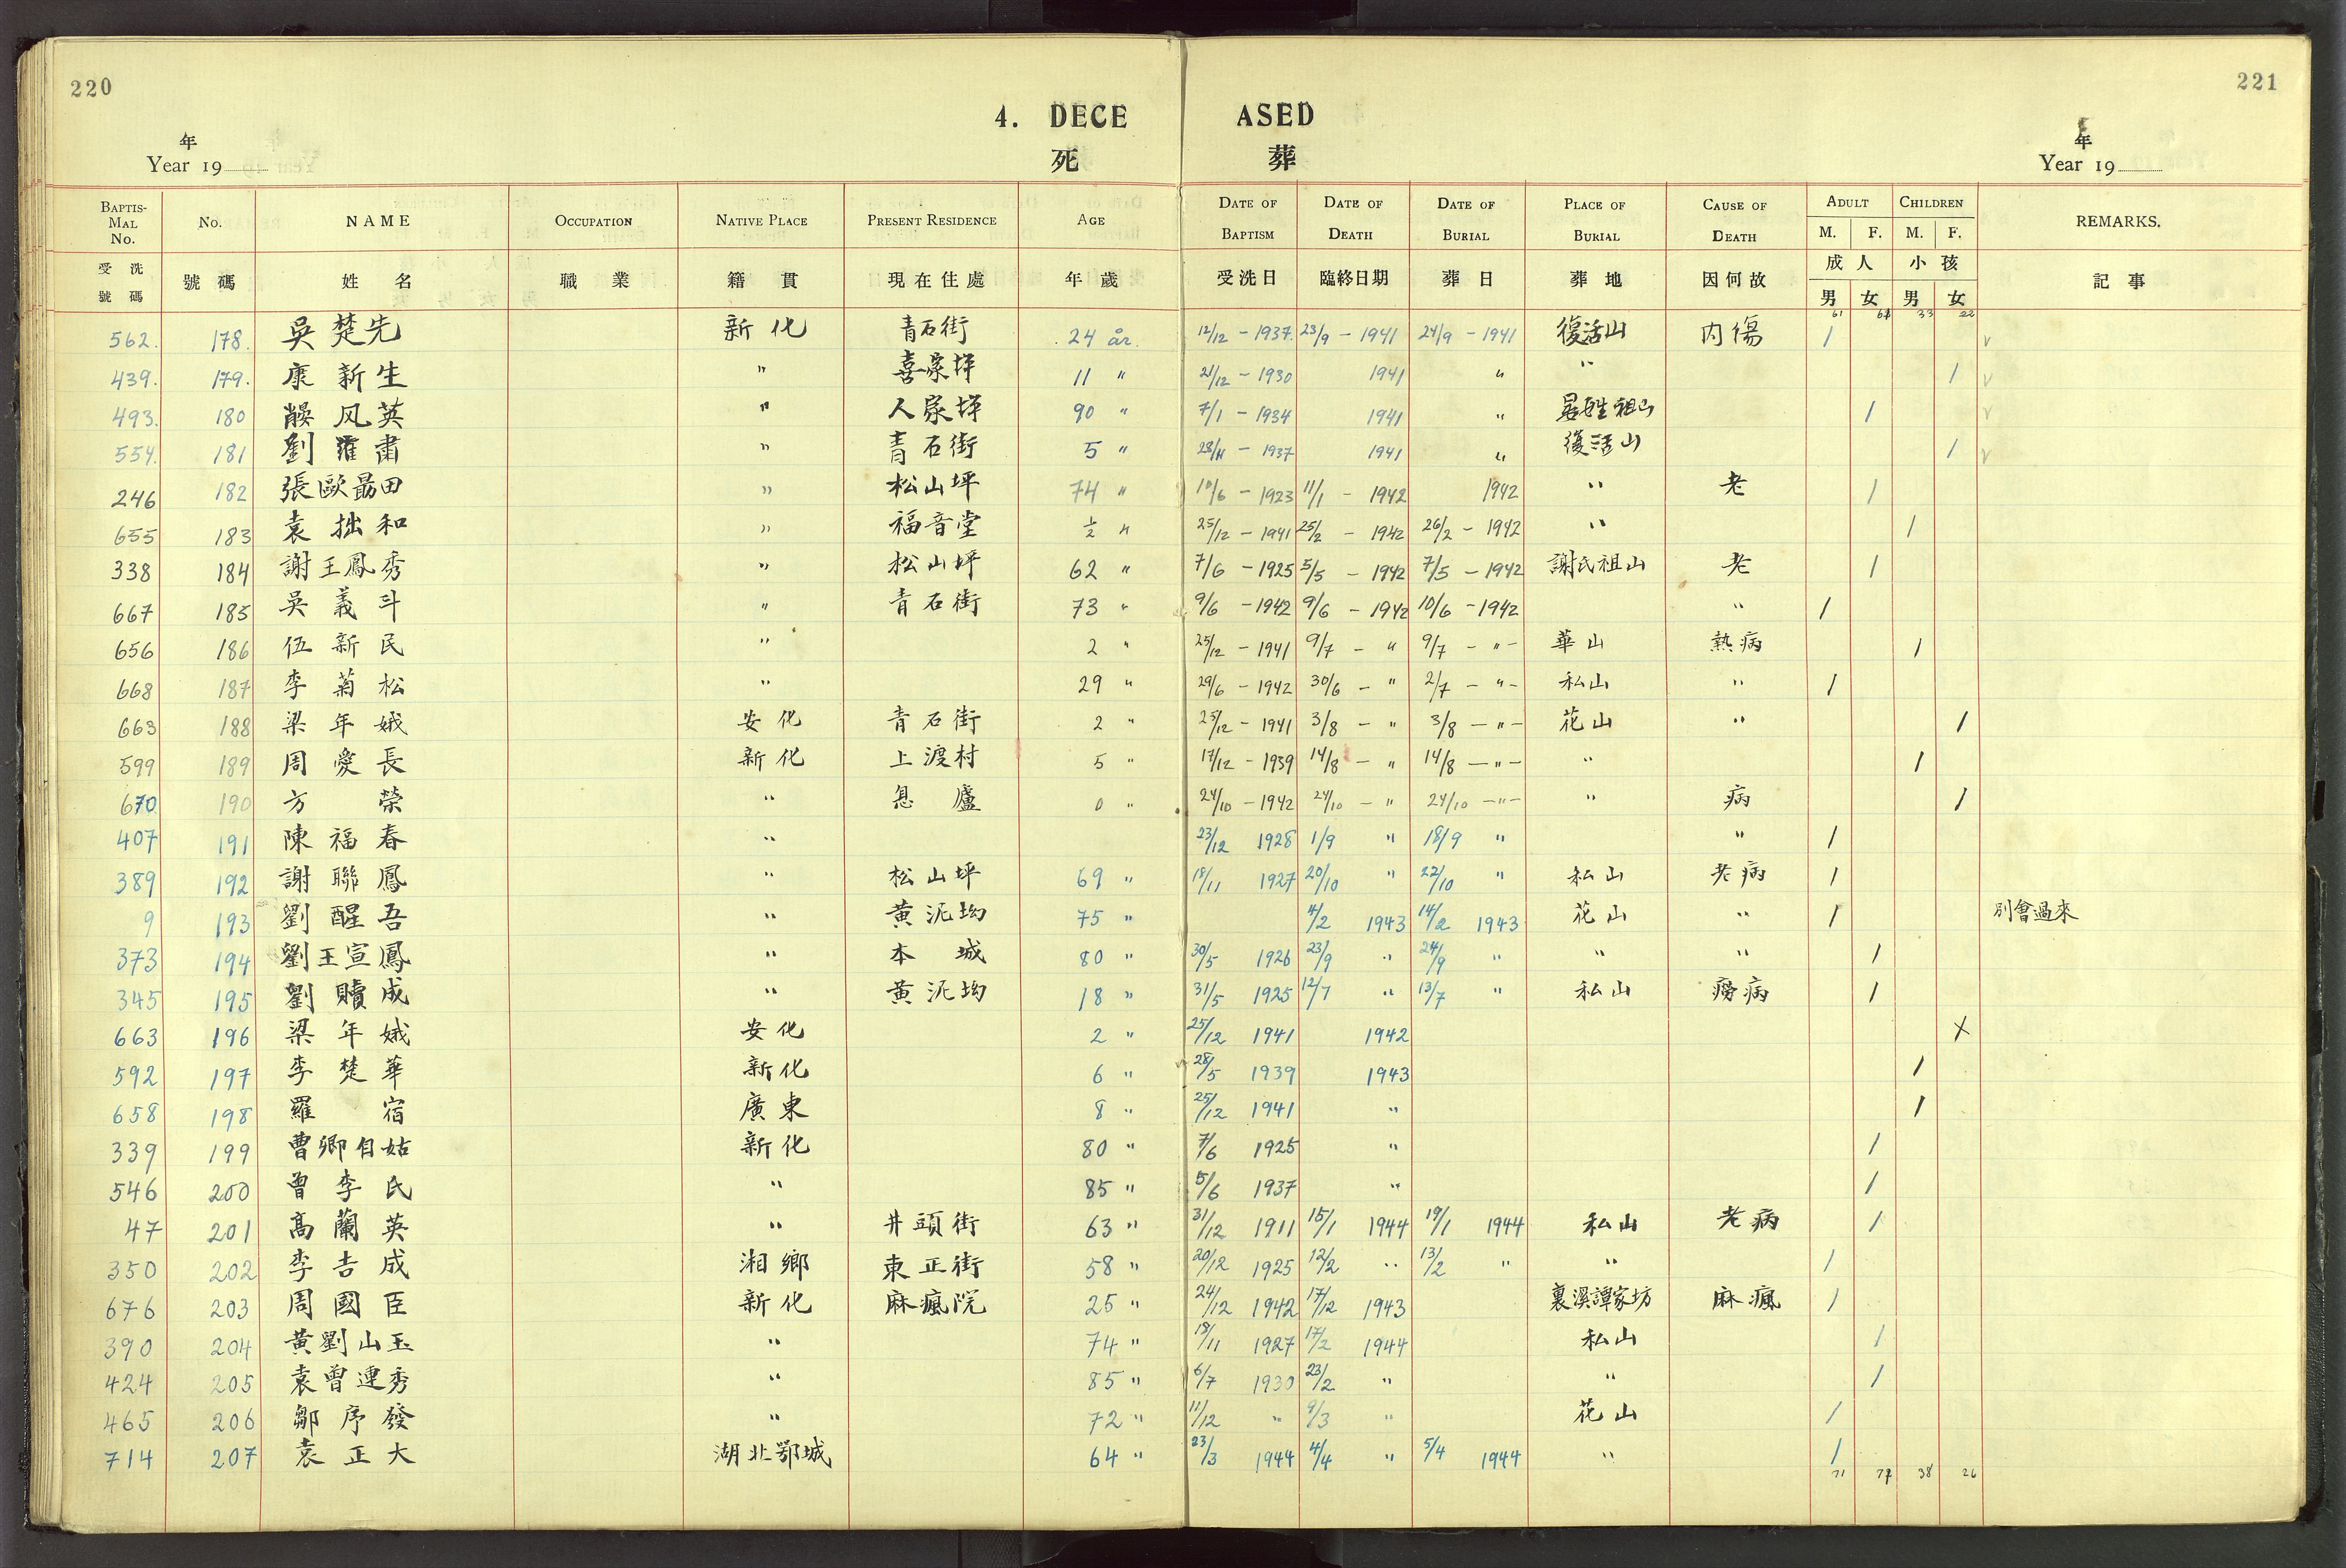 220
221
4. DECEASED
死 葬
年 年
Year 19 Year 19
BAPTISMAL No. No. NAME OCCUPATION NATIVE PLACE PRESENT RESIDENCE AGE DATE OF BAPTISM DATE OF DEATH DATE OF BURIAL PLACE OF BURIAL CAUSE OF DEATH ADULT M. F. CHILDREN M. F. REMARKS.
受洗號碼 號碼 姓名 職業 籍貫 現在住處 年歲 受洗日 臨終日期 葬日 葬地 因何故 成人 男 女 小孩 男 女 記事
61 33 22
562. 178. 吳楚先 新化 青石街 24 år. 12/12 - 1937. 23/9 - 1941 24/9 - 1941 復活山 內傷 /
439. 179. 康新生 " 喜家坪 11 " 21/12 - 1930 1941 " " /
493. 180 风英 " 人家坪 90 " 7/1 - 1934 1941 " /
554. 181 劉羅肅 " 青石街 5 " 28/11 - 1937 1941 " 復活山 /
246 182 張歐勗田 " 松山坪 74 " 10/6 - 1923 11/1 - 1942 1942 " 老 /
655 183 袁拙和 " 福音堂 ½ " 25/12 - 1941 25/2 - 1942 26/2 - 1942 " /
338 184 謝王鳳秀 " 松山坪 62 " 7/6 - 1925 5/5 - 1942 7/5 - 1942 謝氏祖山 老 /
667 185 吳義斗 " 青石街 73 " 9/6 - 1942 9/6 - 1942 10/6 - 1942 " /
656 186 伍新民 " 2 " 25/12 - 1941 9/7 - " 9/7 - " - 華山 熱病 /
668 187 李菊松 " 29 " 29/6 - 1942 30/6 - " 2/7 - " - 私山 " /
663 188 梁年娥 安化 青石街 2 " 25/12 - 1941 3/8 - " 3/8 - " - 花山 " /
599 189 周愛長 新化 上渡村 5 " 17/12 - 1939 14/8 - " 14/8 - " - " /
670. 190 方榮 " 息廬 0 " 24/10 - 1942 24/10 - " 24/10 - " - " 病 /
407 191 陳福春 " 23/12 1928 1/9 " 18/9 " " /
389 192 謝聯鳳 " 松山坪 69 " 18/11 1927 20/10 " 22/10 " 私山 老病 /
9 193 劉醒吾 " 黃泥坳 75 " 4/2 1943 14/2 1943 花山 " / 別會過來
373 194 劉王宣鳳 " 本城 80 " 30/5 1926 23/9 " 24/9 " " " /
345 195 劉贖成 " 黃泥坳 18 " 31/5 1925 12/7 " 13/7 " 私山 癆病 /
663 196 梁年娥 安化 2 " 25/12 1941 1942 X
592 197 李楚華 新化 6 " 28/5 1939 1943 /
658 198 羅宿 廣東 8 " 25/12 1941 " /
339 199 曹卿自姑 新化 80 " 7/6 1925 " /
546 200 曾李民 " 85 " 5/6 1937 " /
47 201 高蘭英 " 井頭街 63 " 31/12 1911 15/1 1944 19/1 1944 私山 老病 /
350 202 李吉成 湘鄉 東正街 58 " 20/12 1925 12/2 " 13/2 " " /
676 203 周國臣 新化 麻瘋院 25 " 24/12 1942 17/12 1943 裏溪譚家坊 麻瘋 /
390 204 黃劉山玉 " 74 " 18/11 1927 17/2 1944 私山 /
424 205 袁曾連秀 " 85 " 6/7 1930 23/2 " " /
465 206 鄒序發 " 72 " 11/12 " 9/3 " 花山 /
714 207 袁正大 湖北鄂城 64 " 23/3 1944 4/4 " 5/4 1944 " /
71 77 38 26